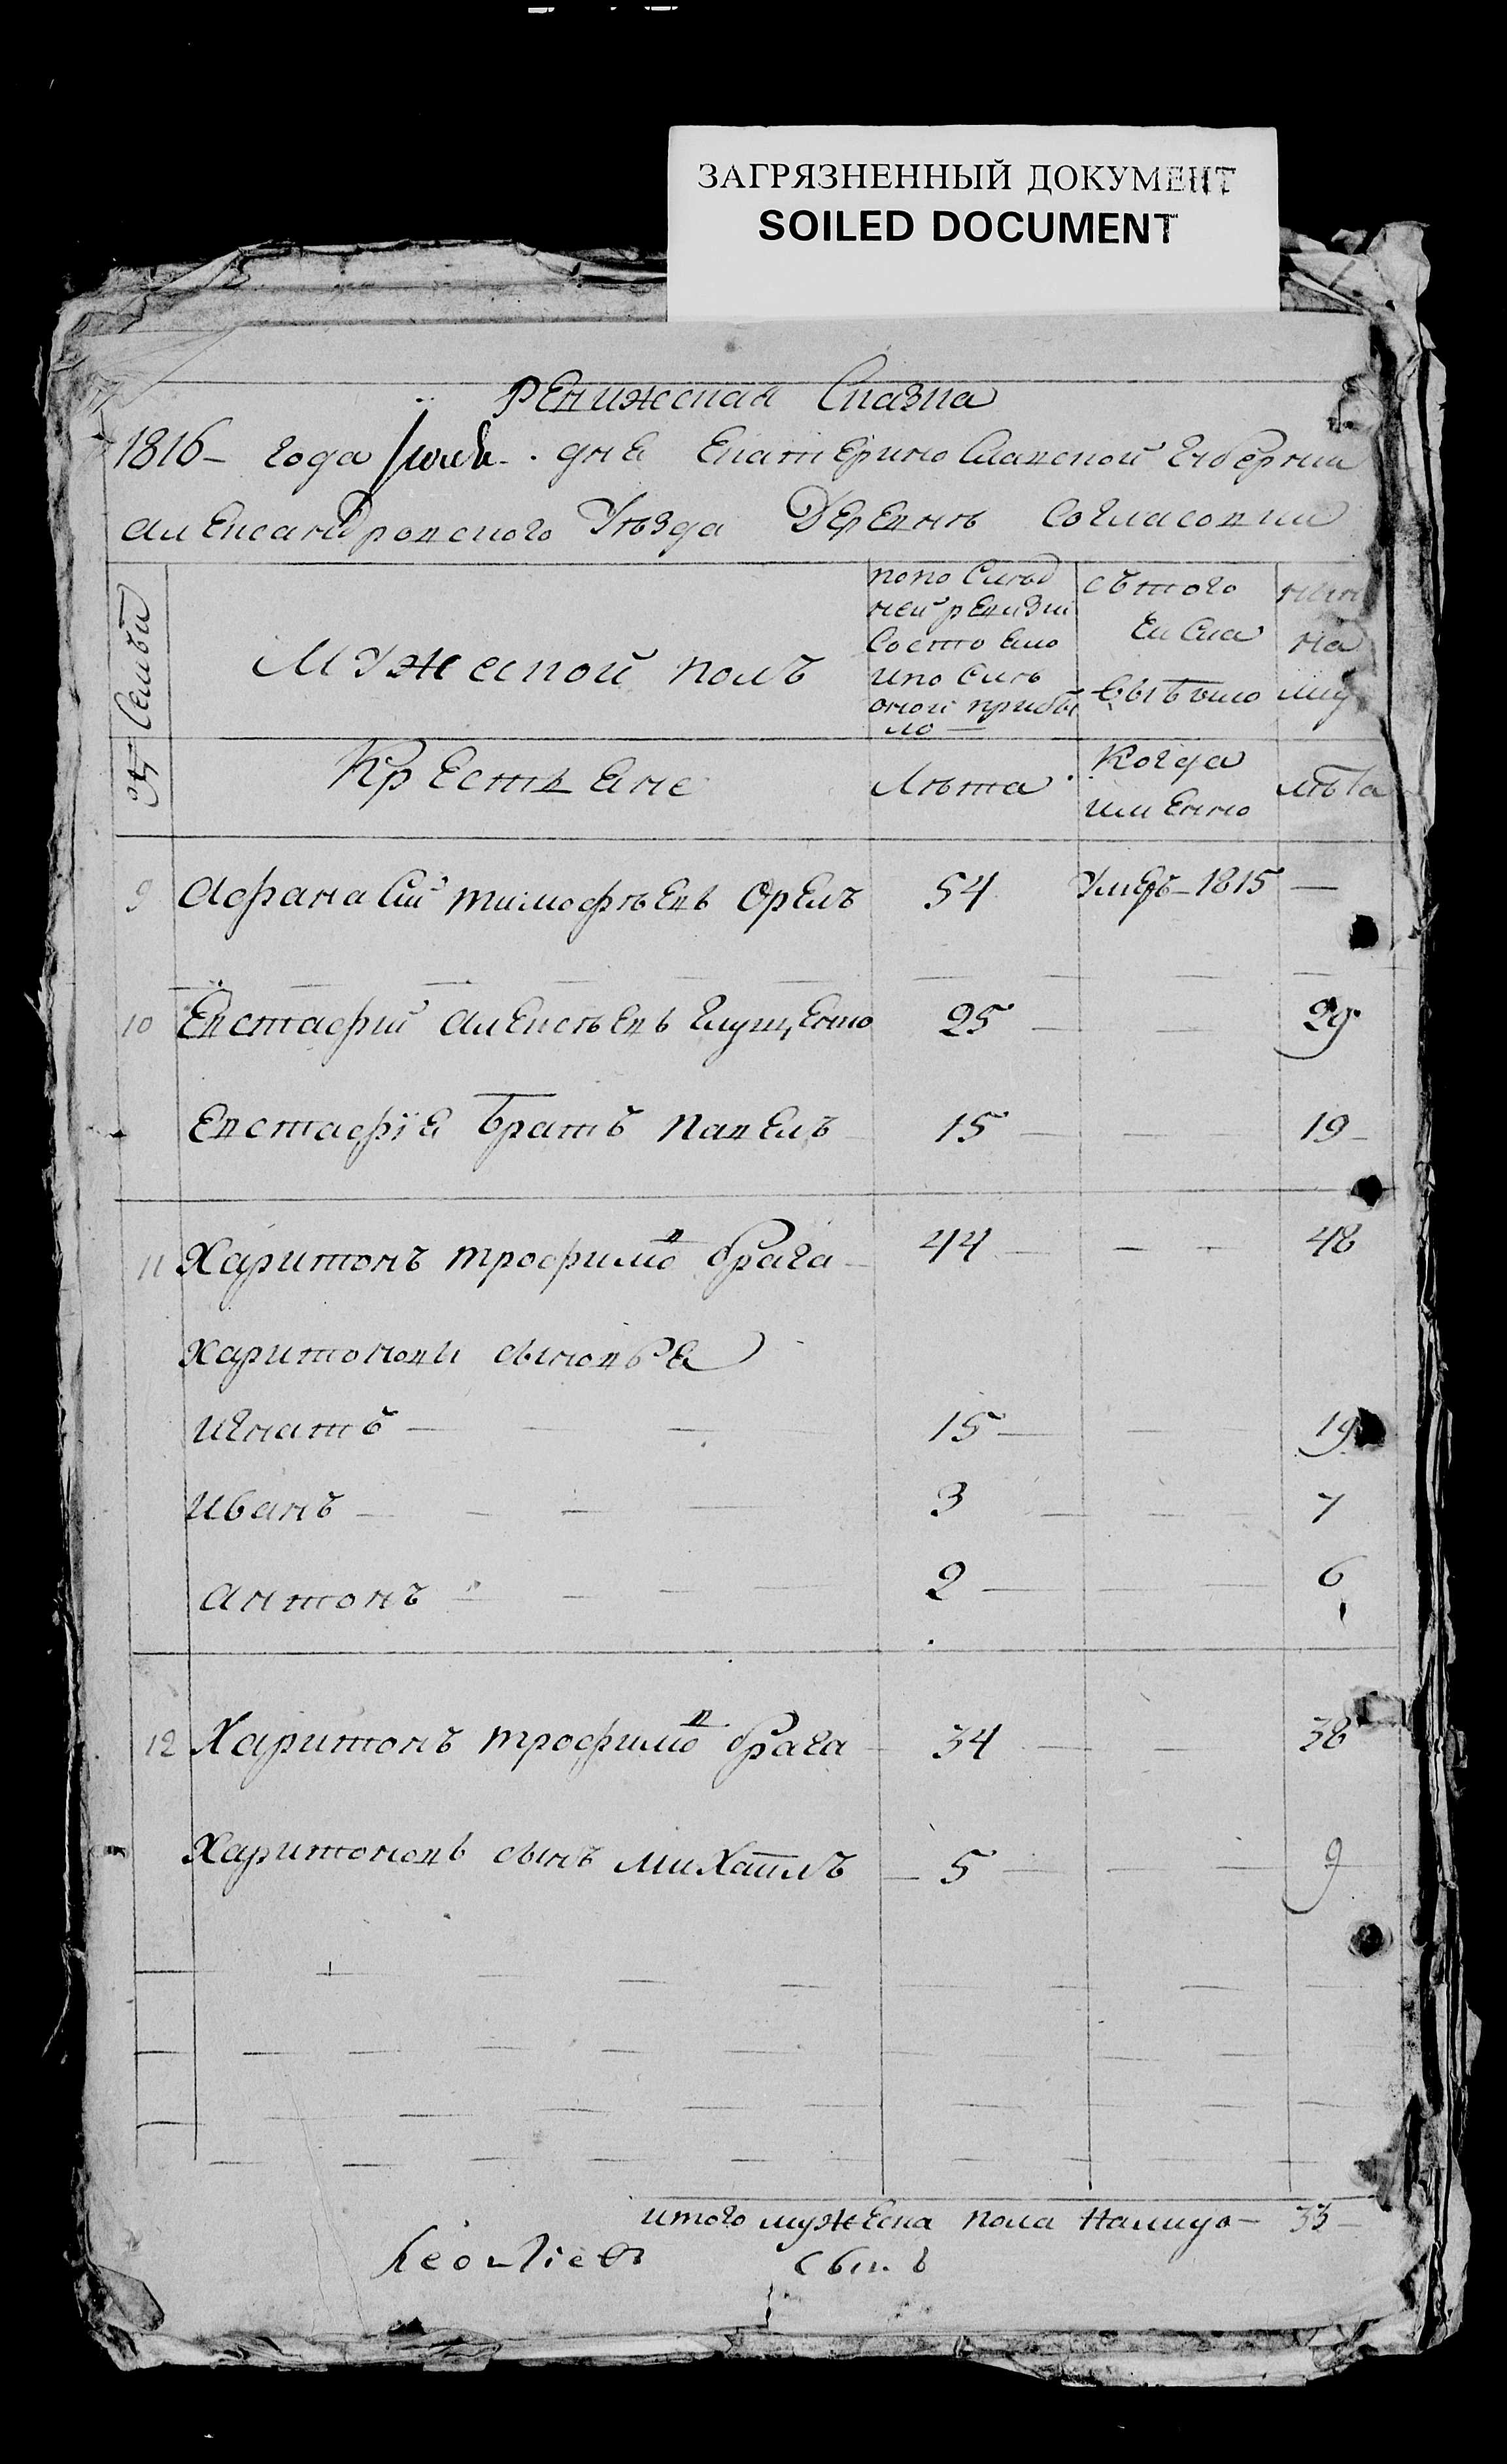 ЗАГРЯЗНЕННЫЙ ДОКУМЕНТ
SOILED DOCUMENT
Ревижская Сказка
1816 – года дня Екатеринославской Губернии
Александровского Уезда Деревнѣ Согласовки
Семьи
Мужеской полъ
попослѣд
ней ревизии
состояло
и послѣ
оной прибы
ло —
съ того
числа
выбыло
нын
на
лиц
Крестьяне
Лѣта
Когда
именно
лѣта
9 Афанасий Тимофѣевъ Орелъ 54 Умеръ – 1815 —
10 Евстафий Алексѣевъ Глущенко 25 — — 29
Евстафіе братъ Павелъ 15 — — 19
11 Харитонъ Трофимовъ брага 44 — — 48
Харитоновы сыновья
Игнатъ — 15 — — 19
Иванъ — 3 — — 7
Антонъ — 2 — — 6
12 Харитонъ Трофимовъ брага 34 — — 38
Харитоновъ сынъ Михаилъ — 5 — — 9
итого мужеска пола налицо – 33 –